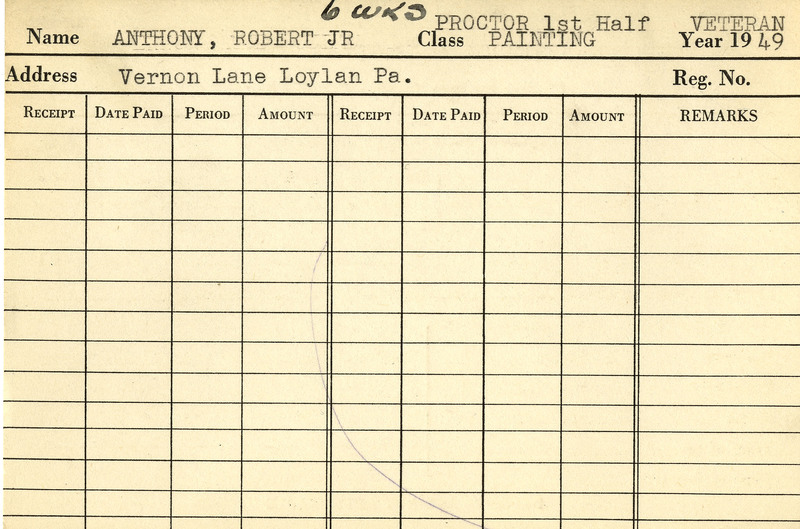 6 WKS PROCTOR 1st Half VETERAN
Name ANTHONY, ROBERT JR Class PAINTING Year 1949
Address Vernon Lane Loylan Pa. Reg. No.
RECEIPT DATE PAID PERIOD AMOUNT RECEIPT DATE PAID PERIOD AMOUNT REMARKS